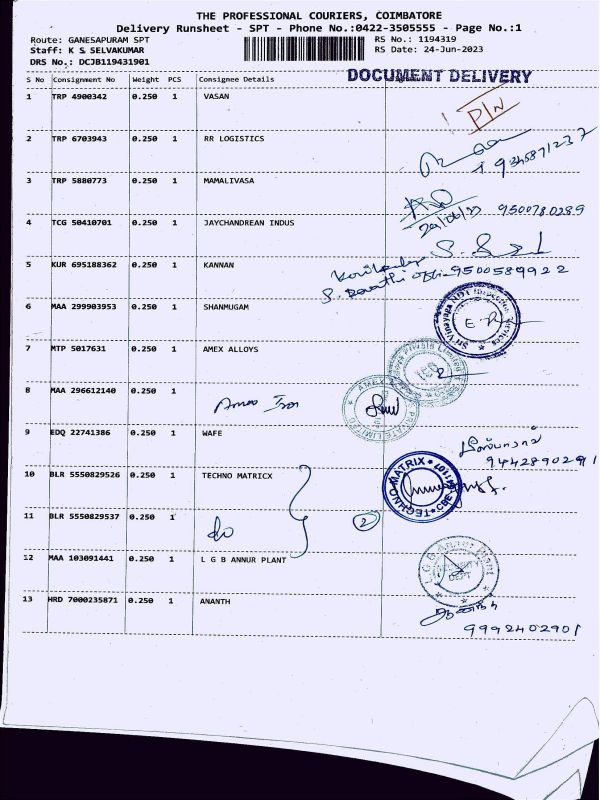 THE PROFESSIONAL COURIERS, COIMBATORE
Delivery Runsheet - SPT - Phone No.:0422-3505555 - Page No.:1
Route: GANESAPURAM SPT RS No.: 1194319
Staff: K S SELVAKUMAR RS Date: 24-Jun-2023
DRS No.: DCJB119431901
DOCUMENT DELIVERY
S No Consignment No Weight PCS Consignee Details
1 TRP 4900342 0.250 1 VASAN
2 TRP 6703943 0.250 1 RR LOGISTICS
3 TRP 5880773 0.250 1 MAMALIVASA
9500780289
4 TCG 50410701 0.250 1 JAYCHANDREAN INDUS
5 KUR 695188362 0.250 1 KANNAN
9500589922
6 MAA 299903953 0.250 1 SHANMUGAM
7 MTP 5017631 0.250 1 AMEX ALLOYS
8 MAA 296612140 0.250 1
9 EDQ 22741386 0.250 1 WAFE
9442890291
10 BLR 5550829526 0.250 1 TECHNO MATRICX
TECHNO MATRIX
11 BLR 5550829537 0.250 1
do 2
12 MAA 103091441 0.250 1 L G B ANNUR PLANT
L.G.B. Annur Plant
SECURITY
DEPT
13 HRD 7000235871 0.250 1 ANANTH
ஆனந்த்
9992402901